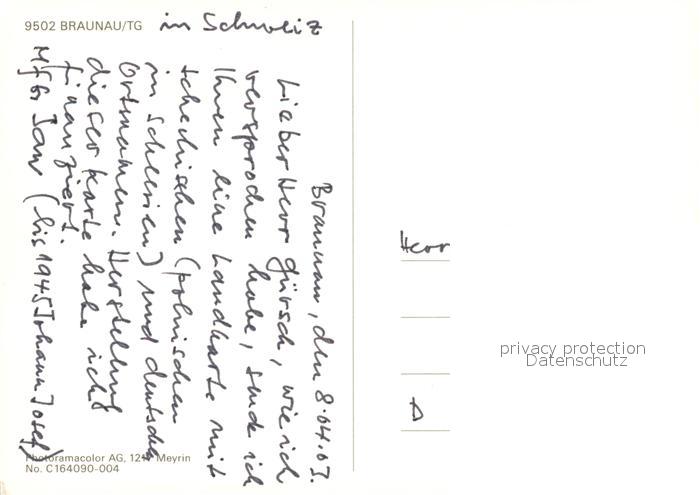 9502 BRAUNAU/TG in Schweiz
Braunau, den 8.04.03.
Lieber Herr Gürsch, wie ich
versprochen habe, sende ich
Ihnen eine Landkarte mit
tschechischen (polnischen
in Schlesien) und deutschen
Ortsnamen. Herstellung
dieser Karte habe ich
finanziert.
MfG Jan (bis 1945 Johann Josef)
Photoramacolor AG, Meyrin
No. C164090-004
Herr
D
privacy protection
Datenschutz